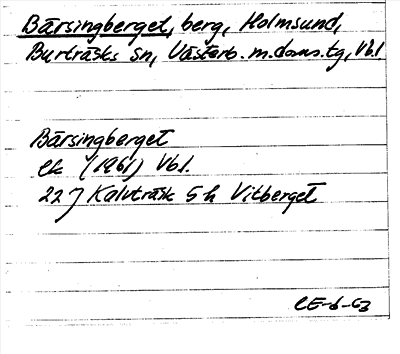 Bärsingberget, berg, Holmsund,
Burträsks sn, Västerb. m. doms. tg, Vbl.
Bärsingberget
ek (1961) Vbl.
22 J Kalvträsk 5 h Vitberget
CE-6-63